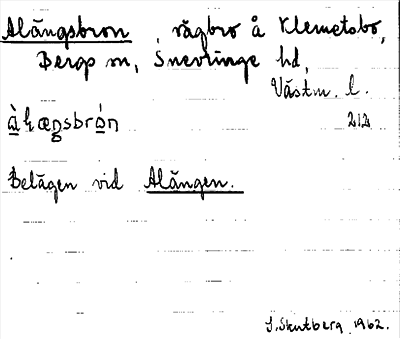 Alängsbron, vägbro å Klemetsbo,
Bergs sn, Snevringe hd,
Västm. l.
à̱ɫæŋsbrò̱n 212
Belägen vid Alängen.
S. Skutberg 1962.